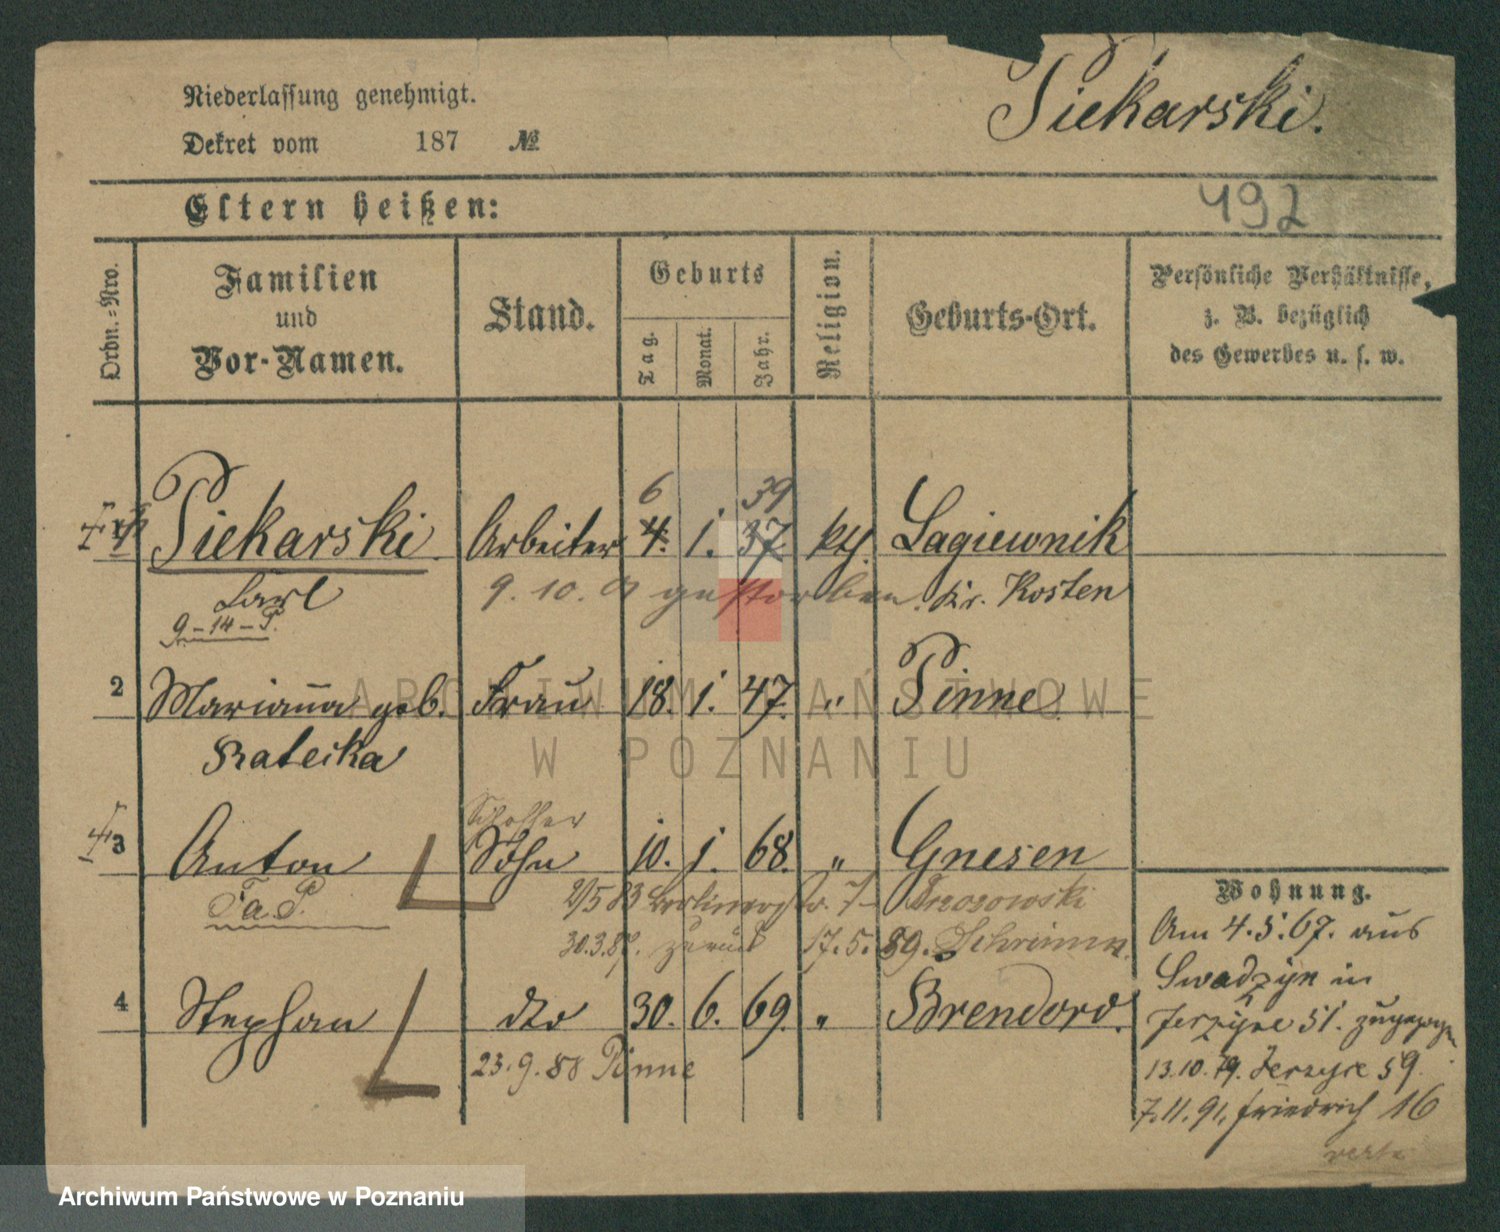 Niederlassung genehmigt.
Dekret vom 187 №
Piekarski.
492
Eltern heißen:
Ordn.-Nro.
Familien
und
Vor-Namen.
Stand.
Geburts
Tag.
Monat.
Jahr.
Religion.
Geburts-Ort.
Persönliche Verhältnisse,
z. B. bezüglich
des Gewerbes u. s. w.
6 39
Piekarski Arbeiter 4. 1. 37. Lagiewnik
Karl 9. 10. gestorben. Kr. Kosten
9-14-P.
2 Marianna geb. Frau 18. 1. 47. " Pinne
Ratecka
3 Anton Sohn 10. 1. 68. " Gnesen
T a. P. 2/5 83 Berlinerstr. 7
30.3.87. zurück 17. 5. 89. Schrimm.
4 Stephan dto 30. 6. 69. " Brendoro.
23. 9. 88 Pinne
Wohnung.
Am 4. 5. 67. aus
Swadzyn in
Jerzyce 51. zugezogen
13.10.79. Jerzyce 59.
7.11.91. Friedrich 16
ARCHIWUM PAŃSTWOWE
W POZNANIU
Archiwum Państwowe w Poznaniu